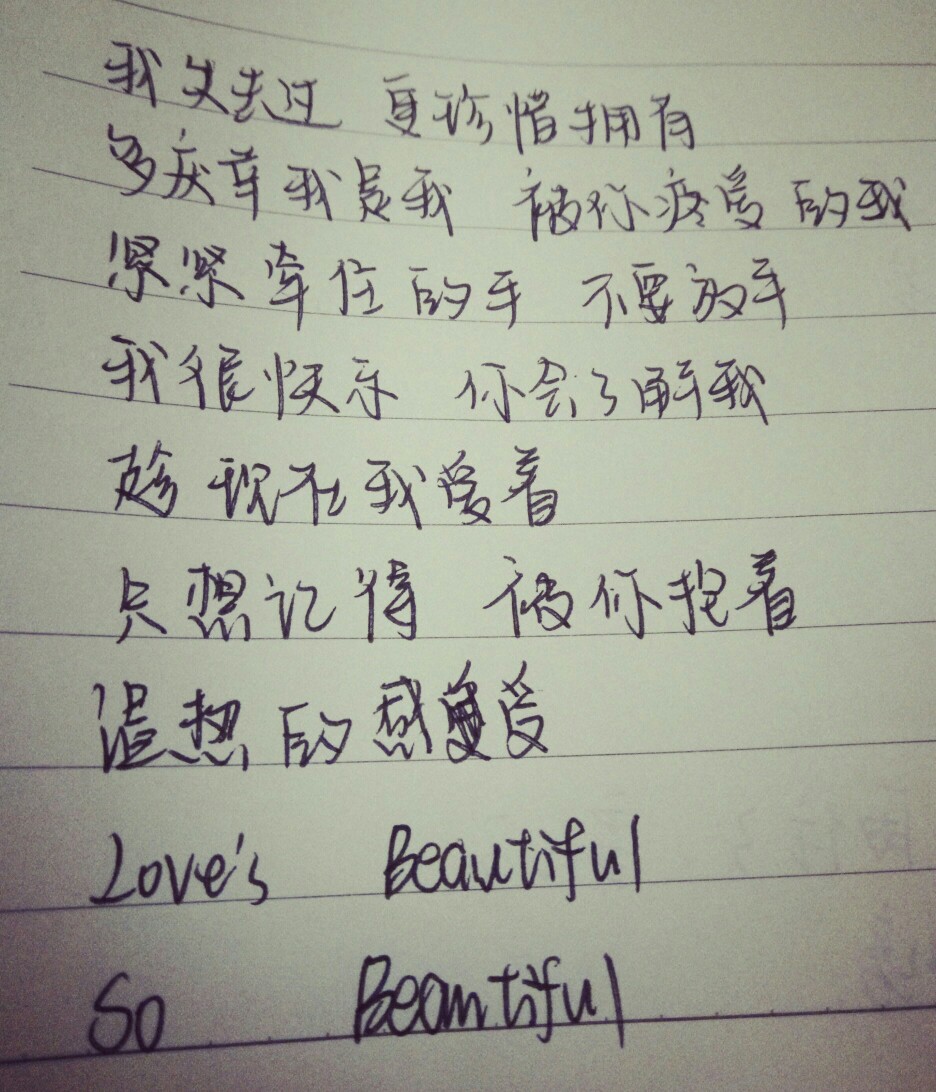 我失去过 更珍惜拥有
多庆幸我是我 被你疼爱的我
紧紧牵住的手 不要放手
我很快乐 你会了解我
趁现在我爱着
只想记得 被你抱着
温想的感受
Love's Beautiful
So Beautiful